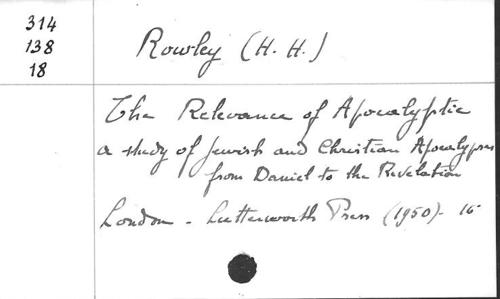 314
138
18
Rowley (H. H.)
The Relevance of Apocalyptic
a study of Jewish and Christian Apocalypses
from Daniel to the Revelation
London - Lutterworth Press (1950) - 16